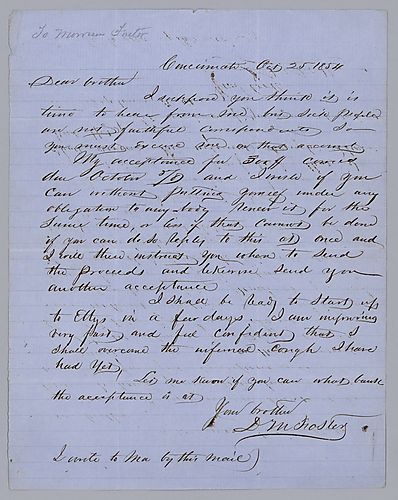 To Morrison Foster
Cincinnati Oct 25 1854
Dear brother
I suppose you think it is
time to hear from me, but sick people
are not faithful correspondents, so
you must excuse me on that account
My acceptance for 300$ comes
due October 31st and I wish if you
can without putting yourself under any
obligation to any-body renew it for the
same time, or less if that cannot be done
if you can do so reply to this at once and
I will then instruct you where to send
the proceeds and likewise send you
another acceptance
I shall be ready to start up
to Ettys in a few days. I am improving
very fast and feel confident that I
shall overcome the infernal cough I have
had yet,
Let me know if you can what bank
the acceptance is at
Your brother
D M Foster
I wrote to Ma by this mail